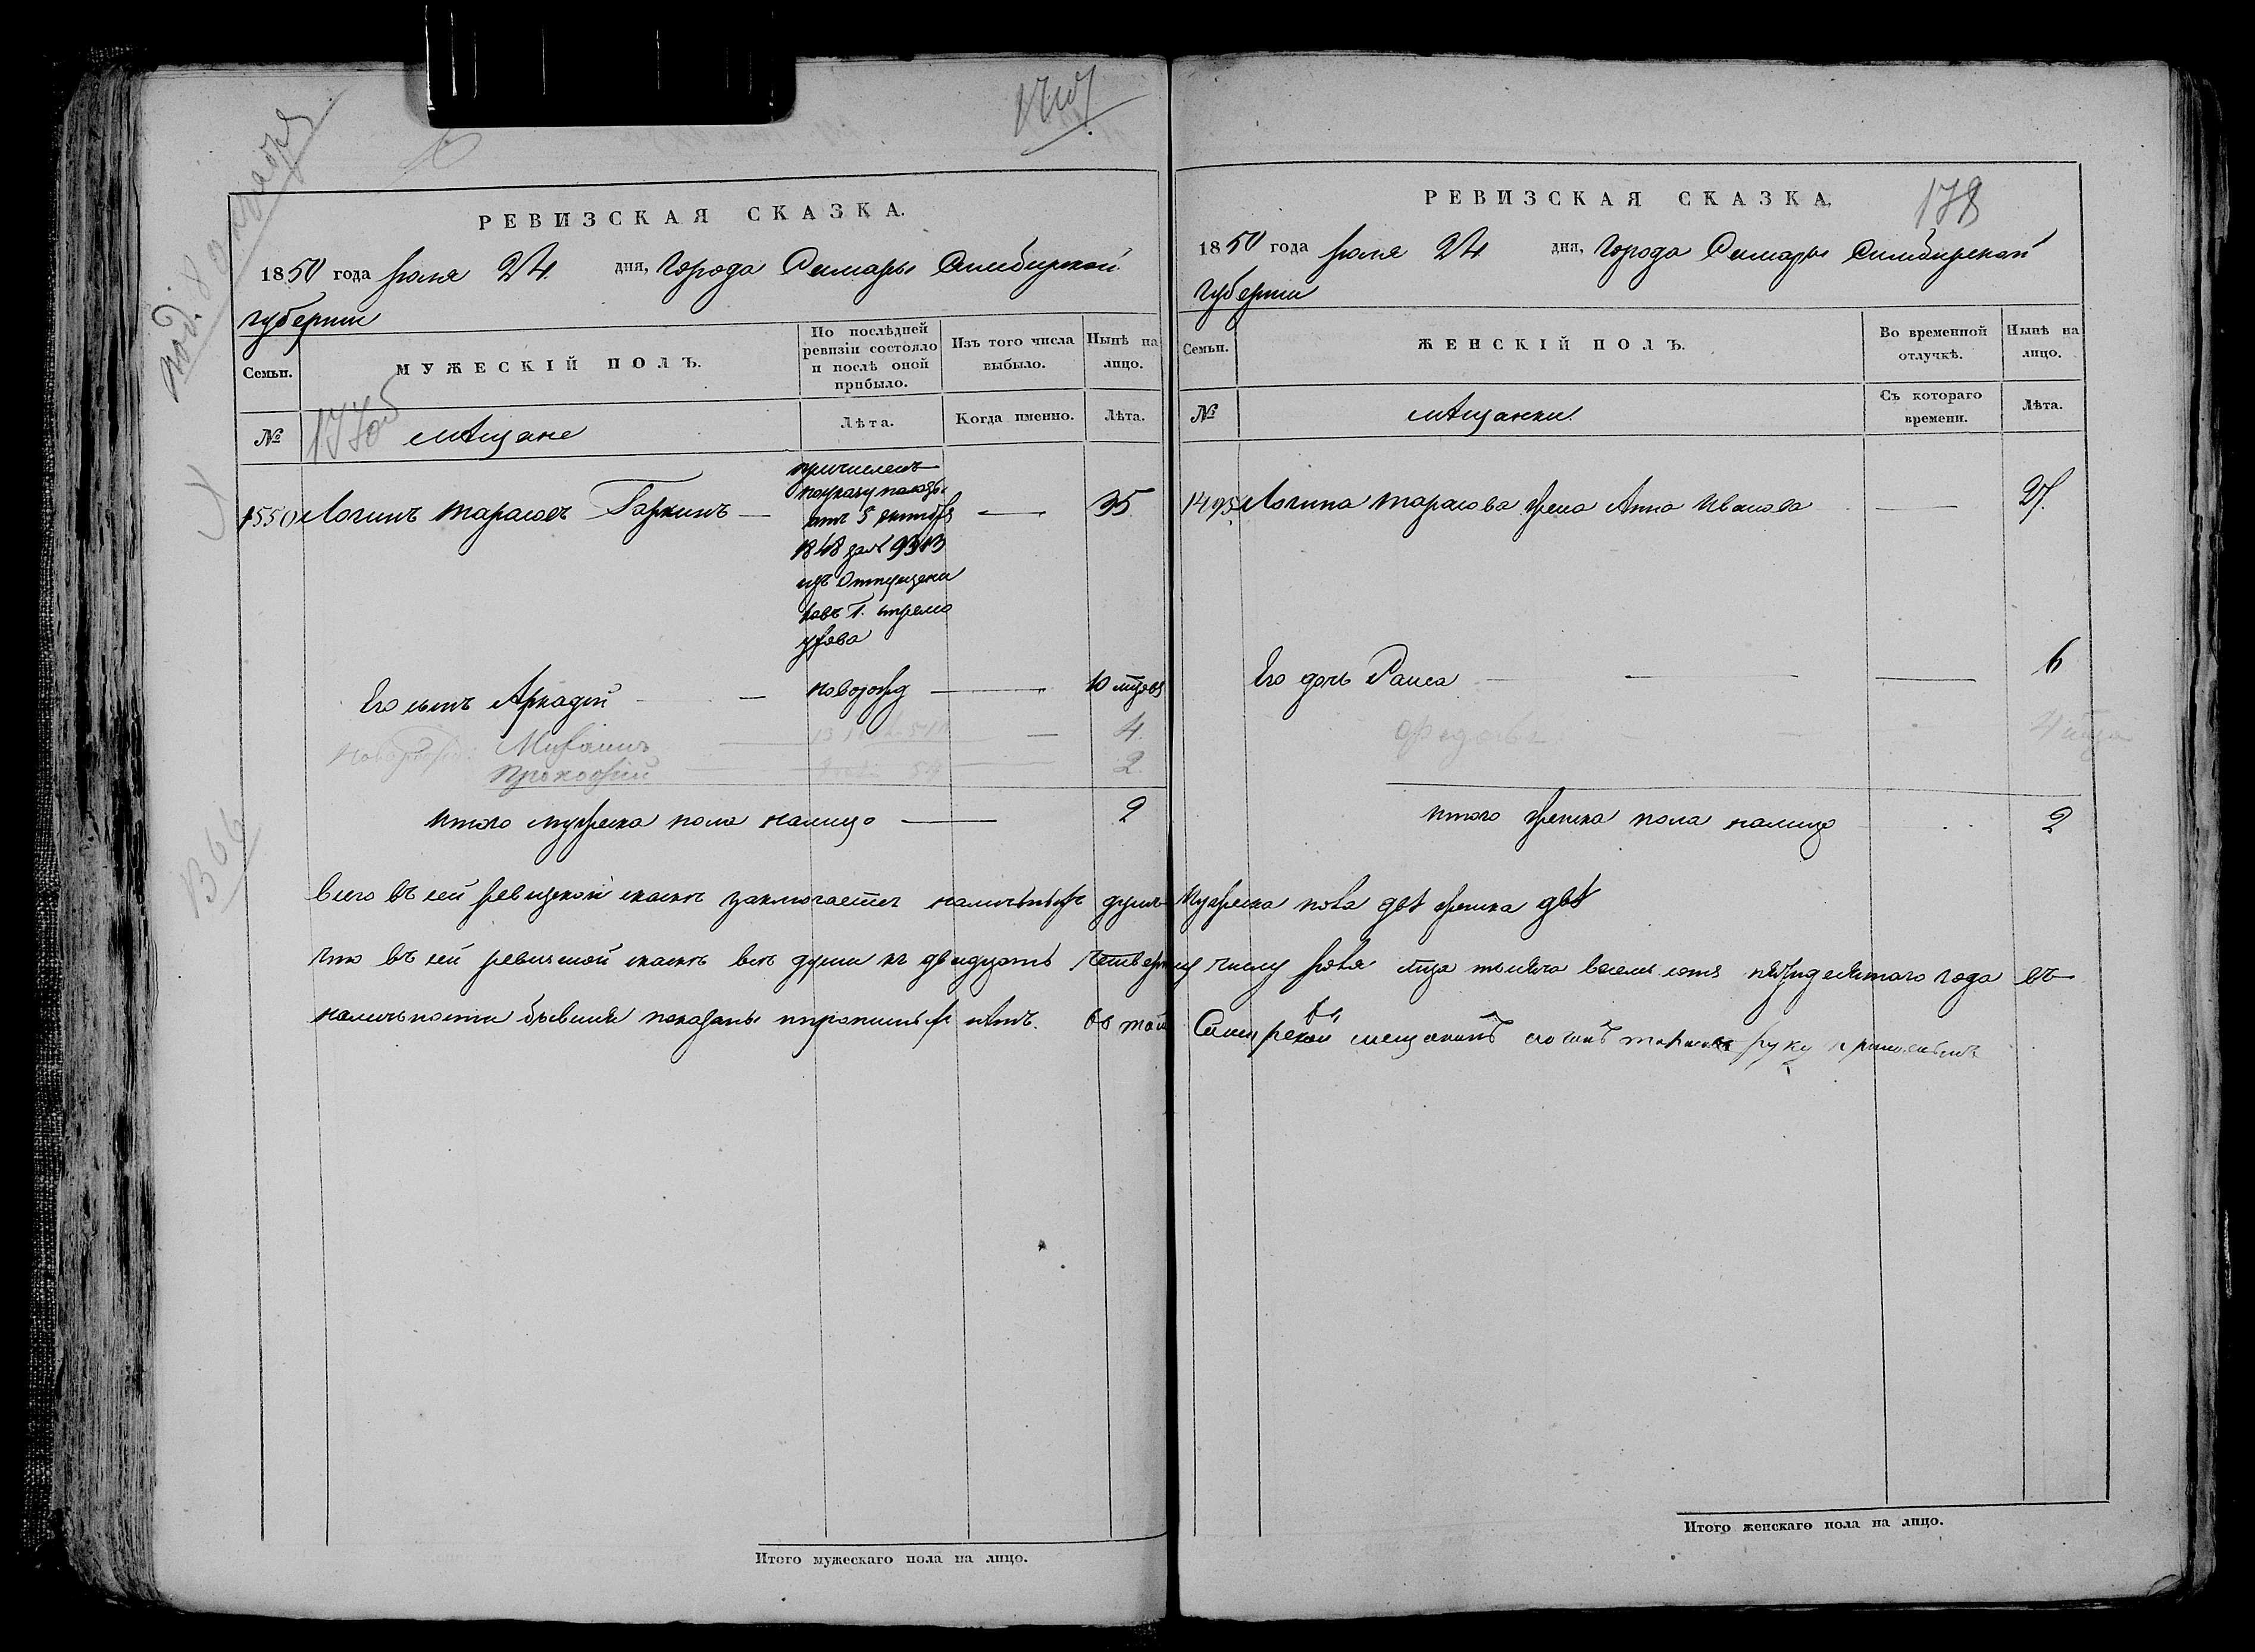 под. 8 октября
178
РЕВИЗСКАЯ СКАЗКА.
1850 года Июля 24 дня, Города Самары Симбирской
губернии
Семьи.
МУЖЕСКІЙ ПОЛЪ.
По послѣдней
ревизіи состояло
и послѣ оной
прибыло.
Изъ того числа
выбыло.
Нынѣ на
лицо.
№
мѣщане
Лѣта.
Когда именно.
Лѣта.
1550 Логинъ Тарасовъ Гаркинъ — причисленъ — 35
по указу палаты
отъ 5 октября
1848 за № 9313
изъ отпущени
ковъ Г.
Его сынъ Аркадій — новорожд — 10 мѣсяцевъ
новорожд: Михаилъ — 4.
Прокофій — 2.
Итого мужеска пола налицо — 2
1366
РЕВИЗСКАЯ СКАЗКА,
1850 года Июля 24 дня, Города Самары Симбирской
Губернии
Семьи.
ЖЕНСКІЙ ПОЛЪ.
Во временной
отлучкѣ.
Нынѣ на
лицо.
№
мѣщанки
Съ котораго
времени.
Лѣта.
1495 Логина Тарасова жена Анна Иванова — 27.
Его дочь Раиса — 6
Итого женска пола налицо 2
Всего въ сей ревизской сказкѣ заключается наличныхъ душъ мужеска пола двѣ женска двѣ
что въ сей ревизской сказкѣ всѣ души къ двадцать четвертому числу Июля мѣсяца тысяча восемь сотъ пятидесятаго года въ
наличности бывшія показаны и прописныхъ нѣтъ. въ томъ Самарской мещанинъ логинъ тарасовъ руку приложилъ
Итого мужескаго пола на лицо.
Итого женскаго пола на лицо.